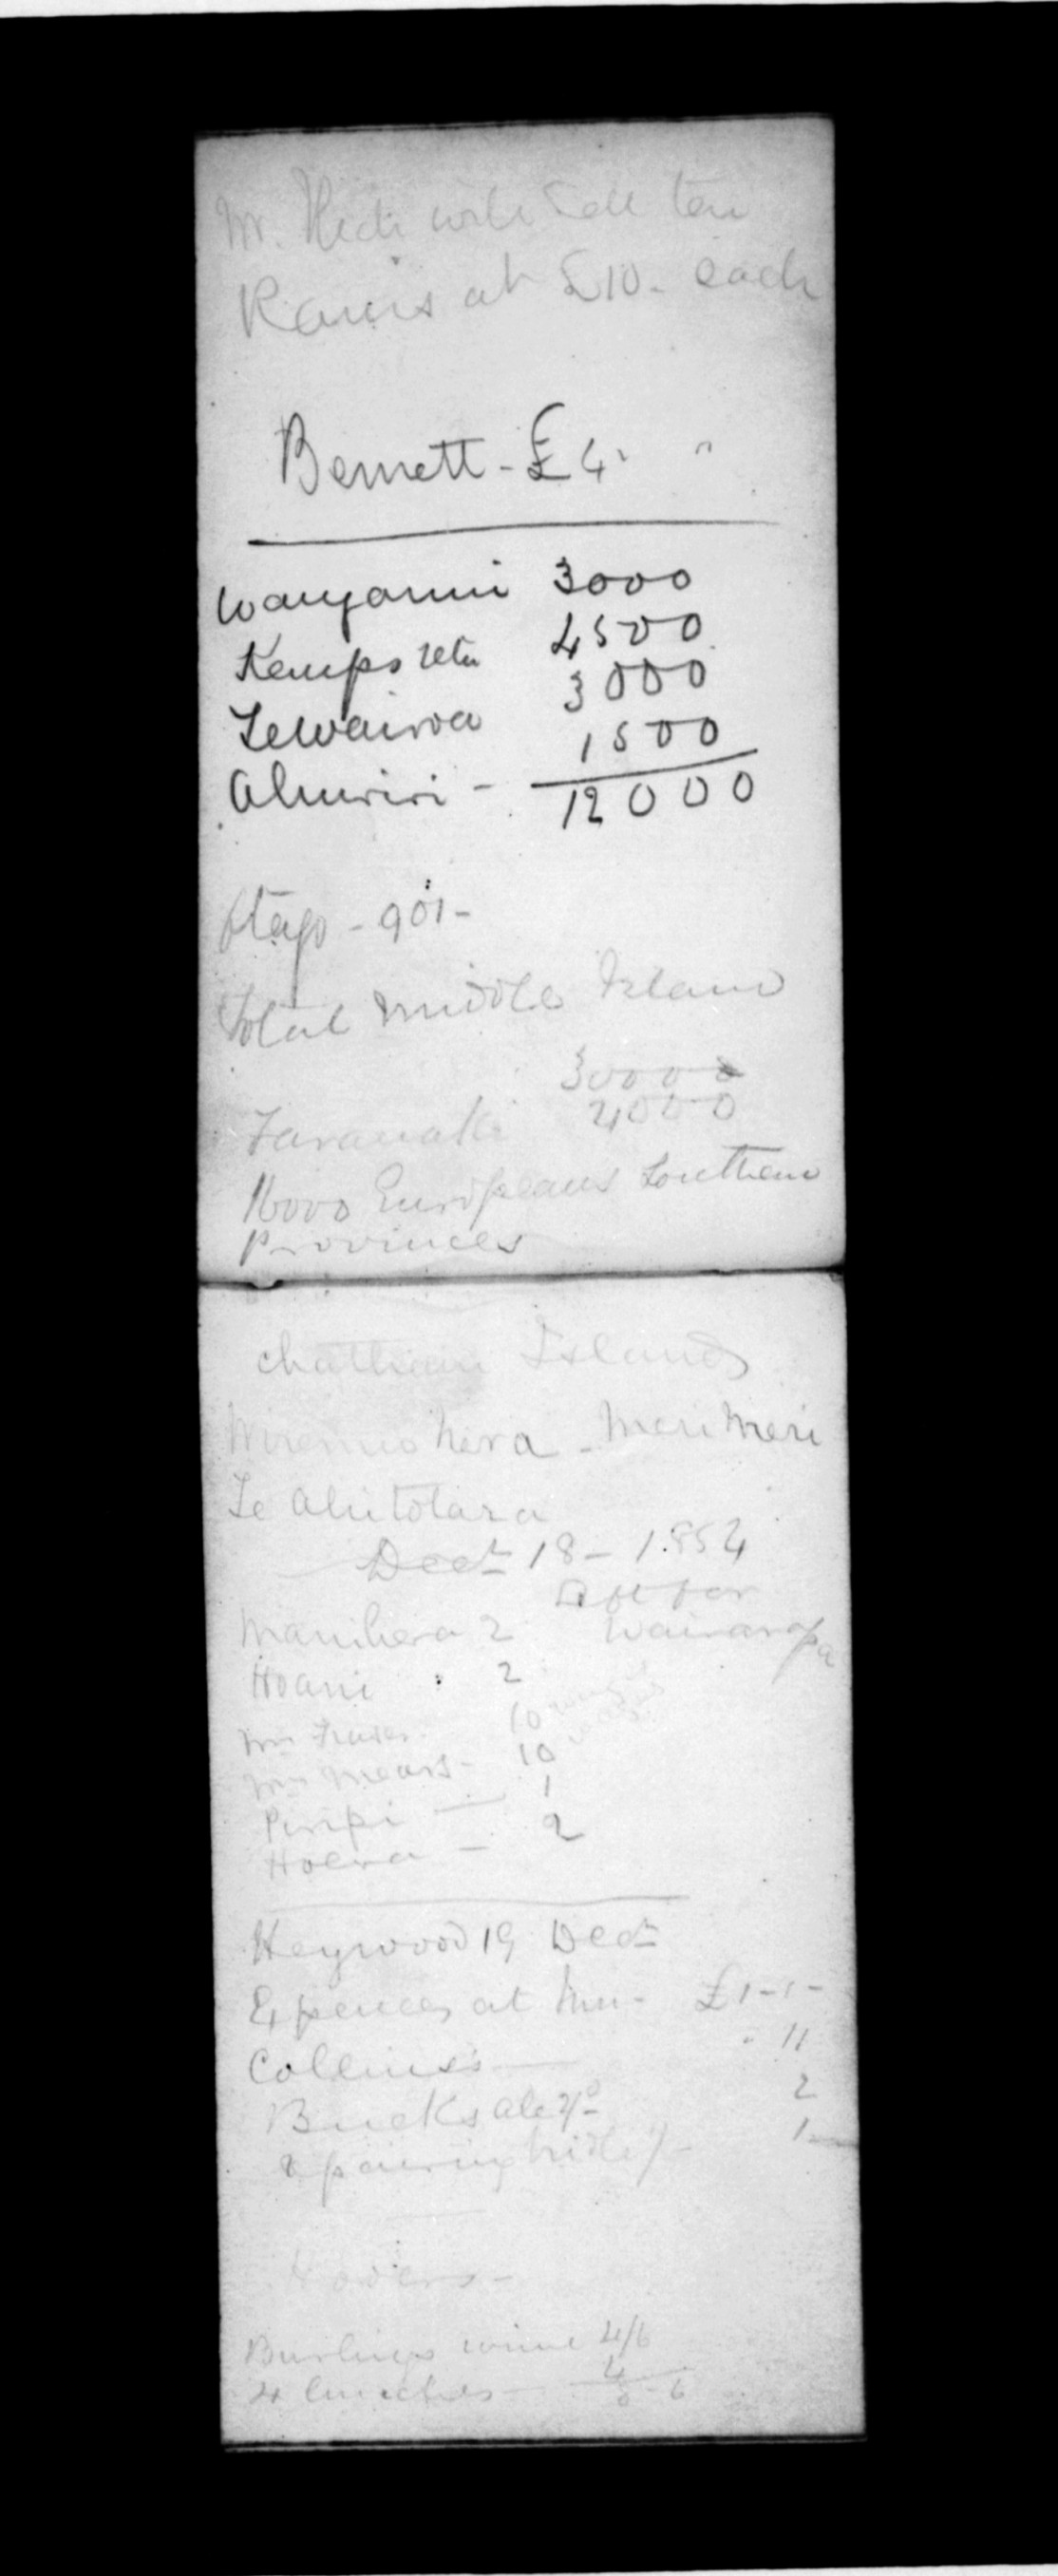 Mr. will sell ten
Rams at £10- each
Bennett - £4. "
Wanganui 3000
Kemps 4500
Te Wairoa 3000
Ahuriri - 1500
12000
Otago - 901 -
Total Middle Island
30000
Taranaki 4000
16000 Europeans Southern
Provinces
Chatham Islands
Wiremu Nera - Meri Meri
Te Ahitotara
Decr 18 - 1854
Wairarapa
Manihera 2
Hoani 2
Mr Fraser 10
Mr Mears - 10
Piripi — 1
Hoera - 2
Heywood 19 Decr
Expences at Inn - £1-1-
Collins's — 11
Bucks ale 2/- 2
repairing bridle 1/- 1
Burlings wine 4/6
4 lunches — 4
8-6